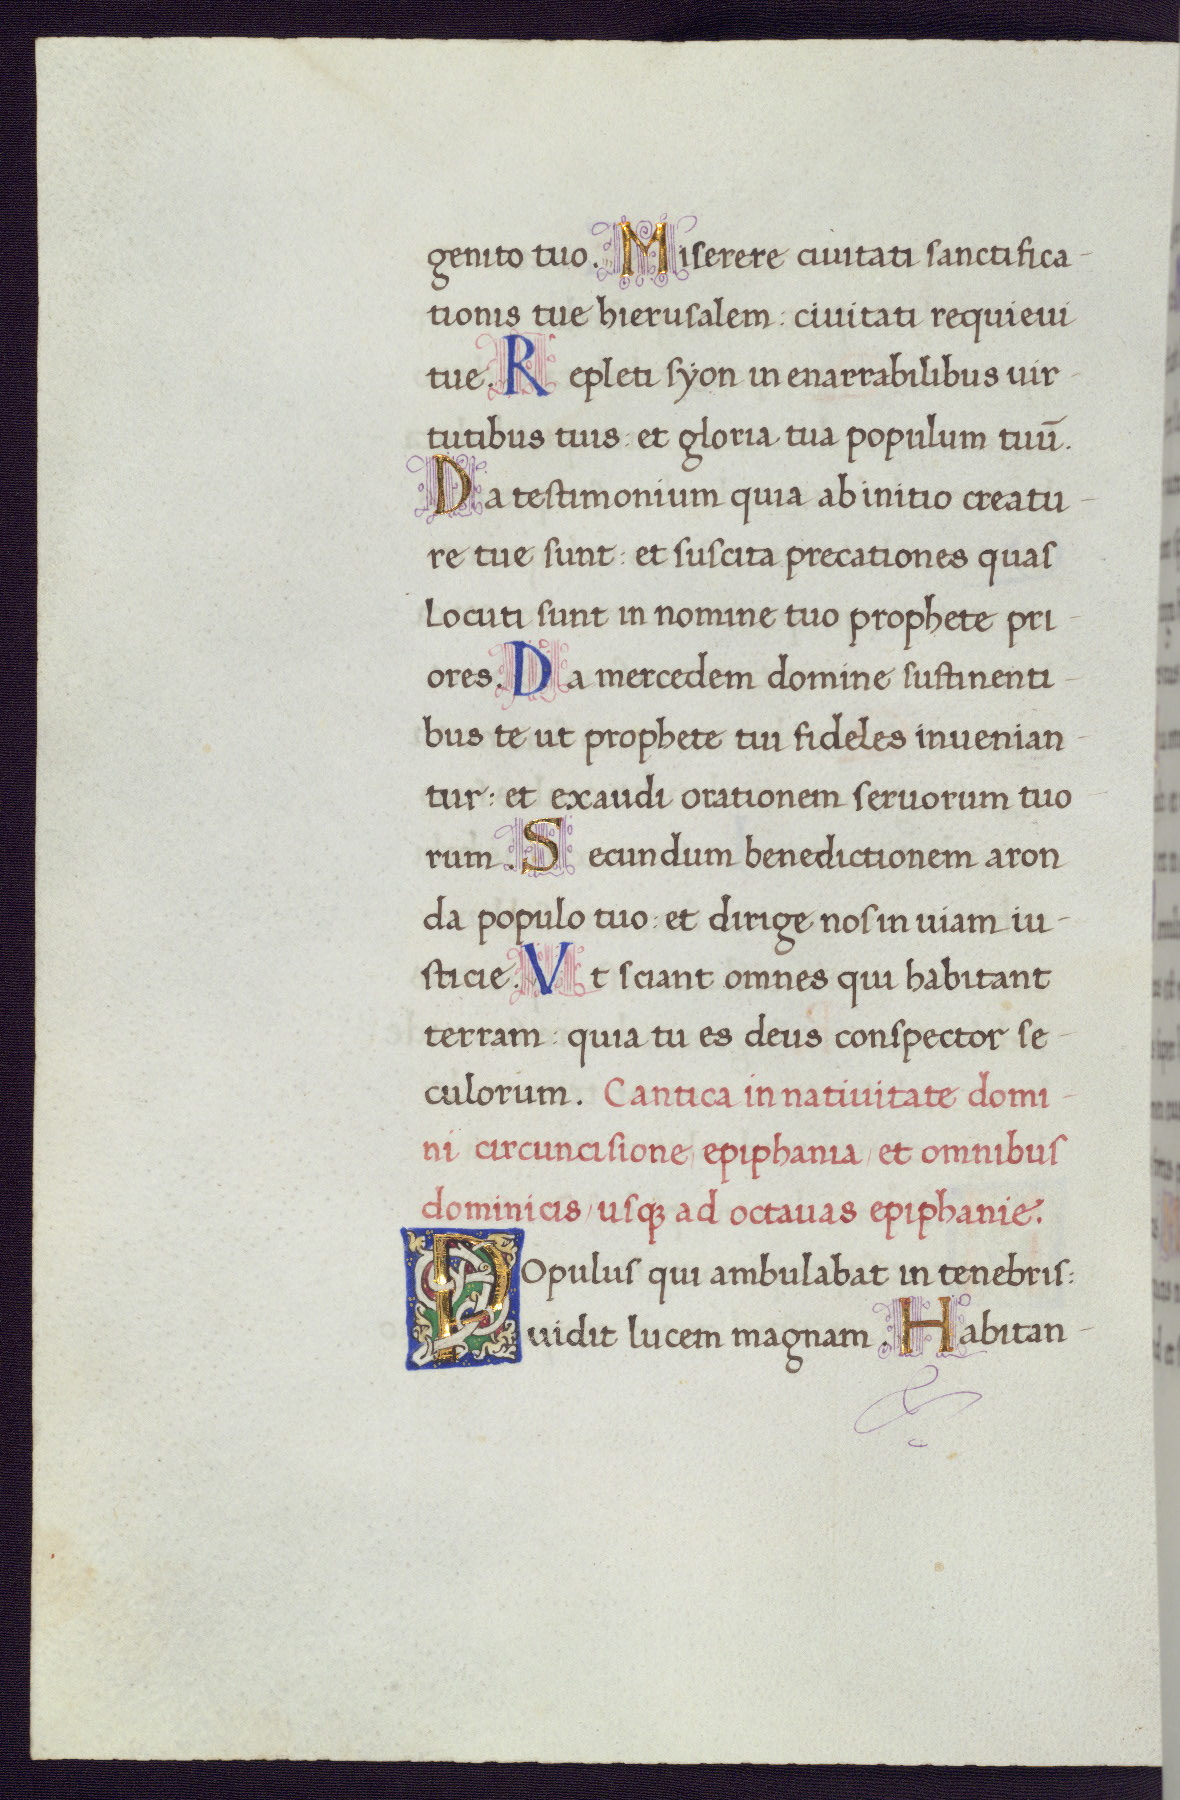 genito tuo. Miserere ciuitati sanctifica-
tionis tue hierusalem: ciuitati requieui
tue. Repleti sÿon in enarrabilibus uir-
tutibus tuis: et gloria tua populum tuū.
Da testimonium quia ab initio creatu-
re tue sunt: et suscita precationes quas
locuti sunt in nomine tuo prophete pri-
ores. Da mercedem domine sustinenti-
bus te ut prophete tui fideles inuenian-
tur: et exaudi orationem seruorum tuo-
rum. Secundum benedictionem aron
da populo tuo: et dirige nos in uiam iu-
sticie. Vt sciant omnes qui habitant
terram: quia tu es deus conspector se-
culorum. Cantica in natiuitate domi-
ni circuncisione/ epiphania/ et omnibus
dominicis/ usqꝫ ad octauas epiphanie.
POpulus qui ambulabat in tenebris:
uidit lucem magnam. Habitan-